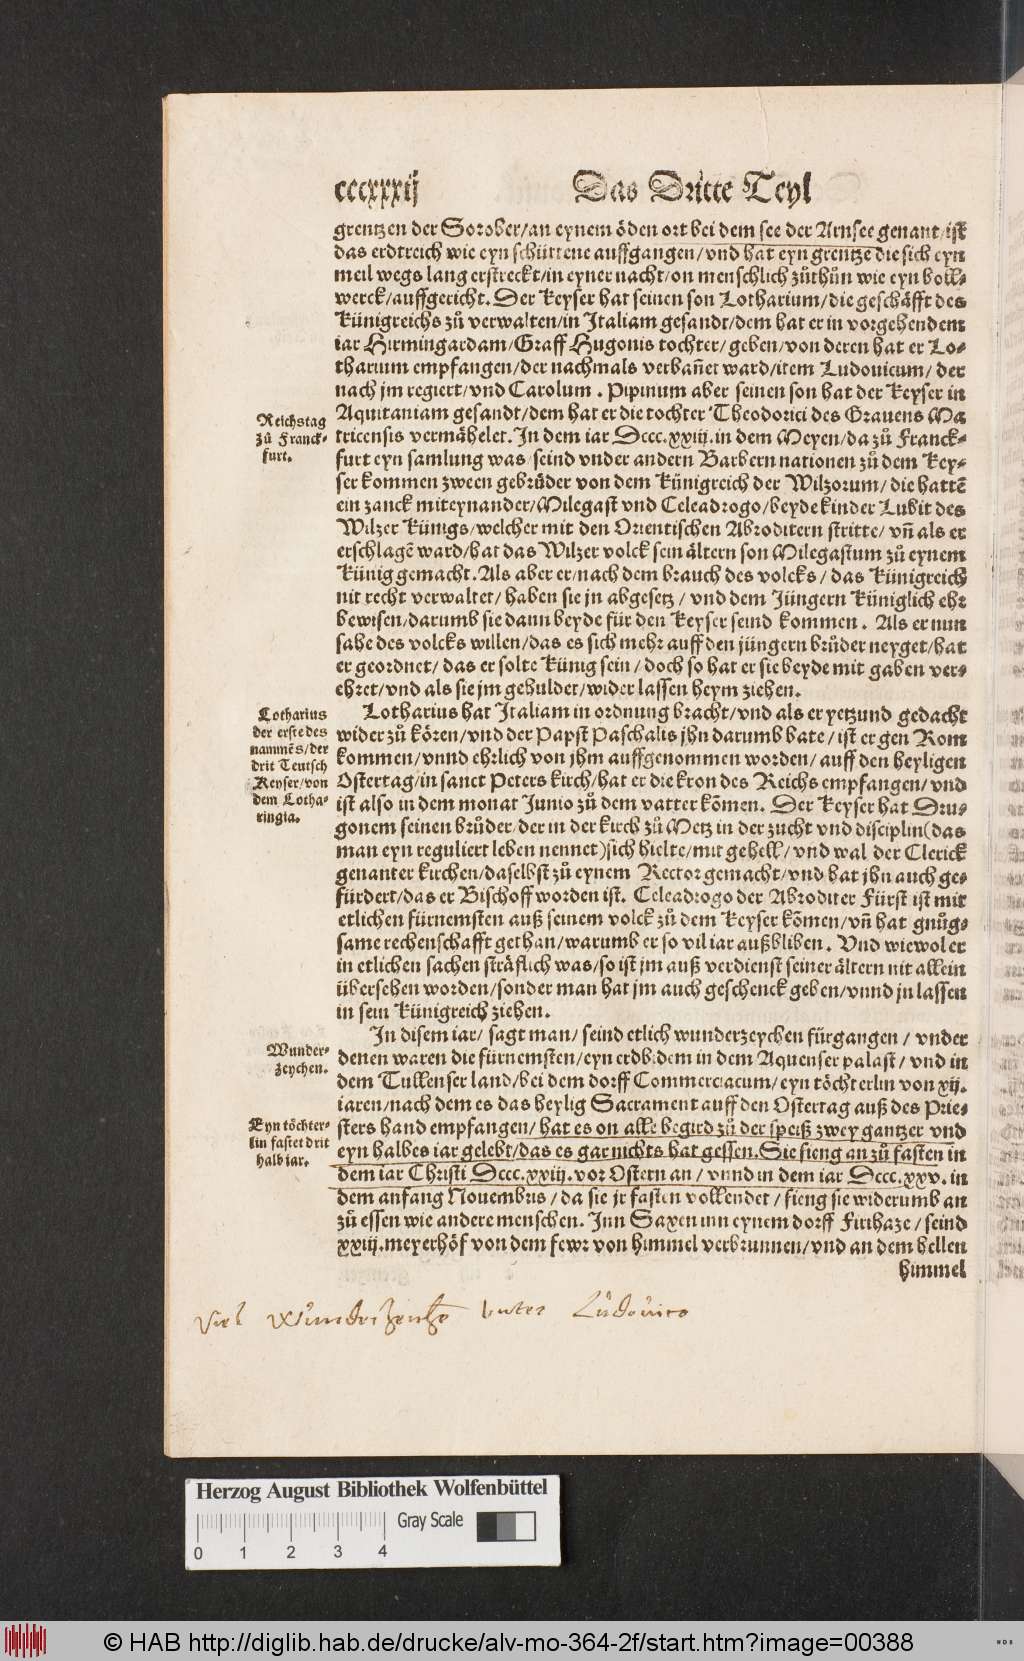 cccxxxij Das Dritte Teyl
grentzen der Sorober/an eynem öden ort bei dem see der Arnsee genant/ist
das erdtreich wie eyn schüttene auffgangen/vnd hat eyn grentze die sich eyn
meil wegs lang erstreckt/in eyner nacht/on menschlich zůthůn wie eyn boll-
werck/auffgericht. Der Keyser hat seinen son Lotharium/die geschäfft des
Künigreichs zů verwalten/in Italiam gesandt/dem hat er in vorgehendem
iar Hirmingardam/Graff Hugonis tochter/geben/von deren hat er Lo-
tharium empfangen/der nachmals verbañet ward/item Ludouicum/ der
nach jm regiert/vnd Carolum. Pipinum aber seinen son hat der Keyser in
Aquitaniam gesandt/dem hat er die tochter Theodorici des Grauens Ma
tricensis vermähelet. In dem iar Dccc.xxiiij. in dem Meyen/da zů Franck-
furt eyn samlung was/seind vnder andern Barbern nationen zů dem Key-
ser kommen zween gebrůder von dem Künigreich der Wilzorum/ die hattē
ein zanck miteynander/Milegast vnd Celeadrogo/beyde kinder Lubit des
Wilzer Künigs/welcher mit den Orientischen Abroditern stritte/ vñ als er
erschlagē ward/hat das Wilzer volck sein ältern son Milegastum zů eynem
Künig gemacht. Als aber er/nach dem brauch des volcks/ das Künigreich
nit recht verwaltet/ haben sie jn abgesetz/ vnd dem Jüngern Küniglich ehr
bewisen/darumb sie dann beyde für den Keyser seind kommen. Als er nun
sahe des volcks willen/das es sich mehr auff den jüngern brůder neyget/hat
er geordnet/ das er solte Künig sein/ doch so hat er sie beyde mit gaben ver-
ehret/vnd als sie jm gehuldet/wider lassen heym ziehen.
Reichstag
zů Franck-
furt.
Lotharius hat Italiam in ordnung bracht/vnd als er yetzund gedacht
wider zů kören/vnd der Papst Paschalis jhn darumb bate/ ist er gen Rom
kommen/vnnd ehrlich von jhm auffgenommen worden/ auff den heyligen
Ostertag/in sanct Peters kirch/hat er die kron des Reichs empfangen/ vnd
ist also in dem monat Junio zů dem vatter kōmen. Der Keyser hat Dru-
gonem seinen brůder/der in der kirch zů Metz in der zucht vnd disciplin(das
man eyn reguliert leben nennet)sich hielte/mit gehell/ vnd wal der Clerick
genanter kirchen/daselbst zů eynem Rector gemacht/vnd hat jhn auch ge-
fürdert/das er Bischoff worden ist. Celeadrogo der Abroditer Fürst ist mit
etlichen fürnemsten auß seinem volck zů dem Keyser kōmen/vñ hat gnůg-
same rechenschafft gethan/warumb er so vil iar außbliben. Vnd wiewol er
in etlichen sachen sträflich was/so ist jm auß verdienst seiner ältern nit allein
übersehen worden/sonder man hat jm auch geschenck geben/vnnd jn lassen
in sein Künigreich ziehen.
Lotharius
der erste des
nammēs/der
drit Teutsch
Keyser/von
dem Lotha-
ringia.
In disem iar/ sagt man/ seind etlich wunderzeychen fürgangen/ vnder
denen waren die fürnemsten/eyn erdbidem in dem Aquenser palast/ vnd in
dem Tullenser land/bei dem dorff Commerciacum/eyn töchterlin von xij.
iaren/nach dem es das heylig Sacrament auff den Ostertag auß des Prie-
sters hand empfangen/ hat es on alle begird zů der speiß zwey gantzer vnd
eyn halbes iar gelebt/das es gar nichts hat gessen. Sie fieng an zů fasten in
dem iar Christi Dccc.xxiij. vor Ostern an/ vnnd in dem iar Dccc.xxv. in
dem anfang Nouembris/ da sie jr fasten vollendet/ fieng sie widerumb an
zů essen wie andere menschen. Inn Saxen inn eynem dorff Firihaze/ seind
xxiij. meyerhöf von dem fewr von himmel verbrunnen/vnd an dem hellen
himmel
Wunder-
zeychen.
Eyn töchter-
lin fastet drit
halb iar.
Viel Wunderzeichē vnter Ludouico
Herzog August Bibliothek Wolfenbüttel
Gray Scale
0 1 2 3 4
© HAB http://diglib.hab.de/drucke/alv-mo-364-2f/start.htm?image=00388